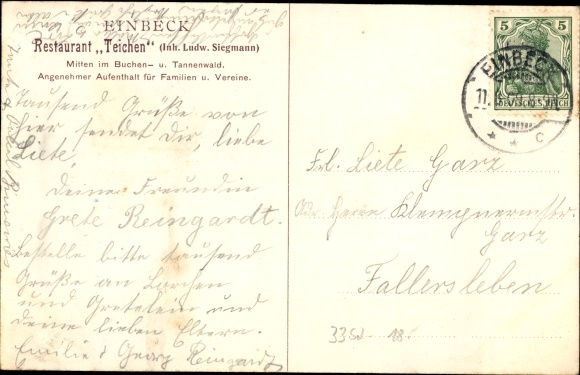 EINBECK
Restaurant „Teichen“ (Inh. Ludw. Siegmann)
Mitten im Buchen- u. Tannenwald.
Angenehmer Aufenthalt für Familien u. Vereine.
Tausend Grüße von
hier sendet Dir, liebe
Liete,
Deine Freundin
Grete Reingardt.
Bestelle bitte tausend
Grüße an Lorchen
und Gretelein und
deine lieben Eltern.
Emilie & Georg Reingardt
5 5
DEUTSCHES REICH
EINBECK
11.
* * c
Frl. Liete Garz
Adr. Herrn Klempnermstr.
Garz
Fallersleben